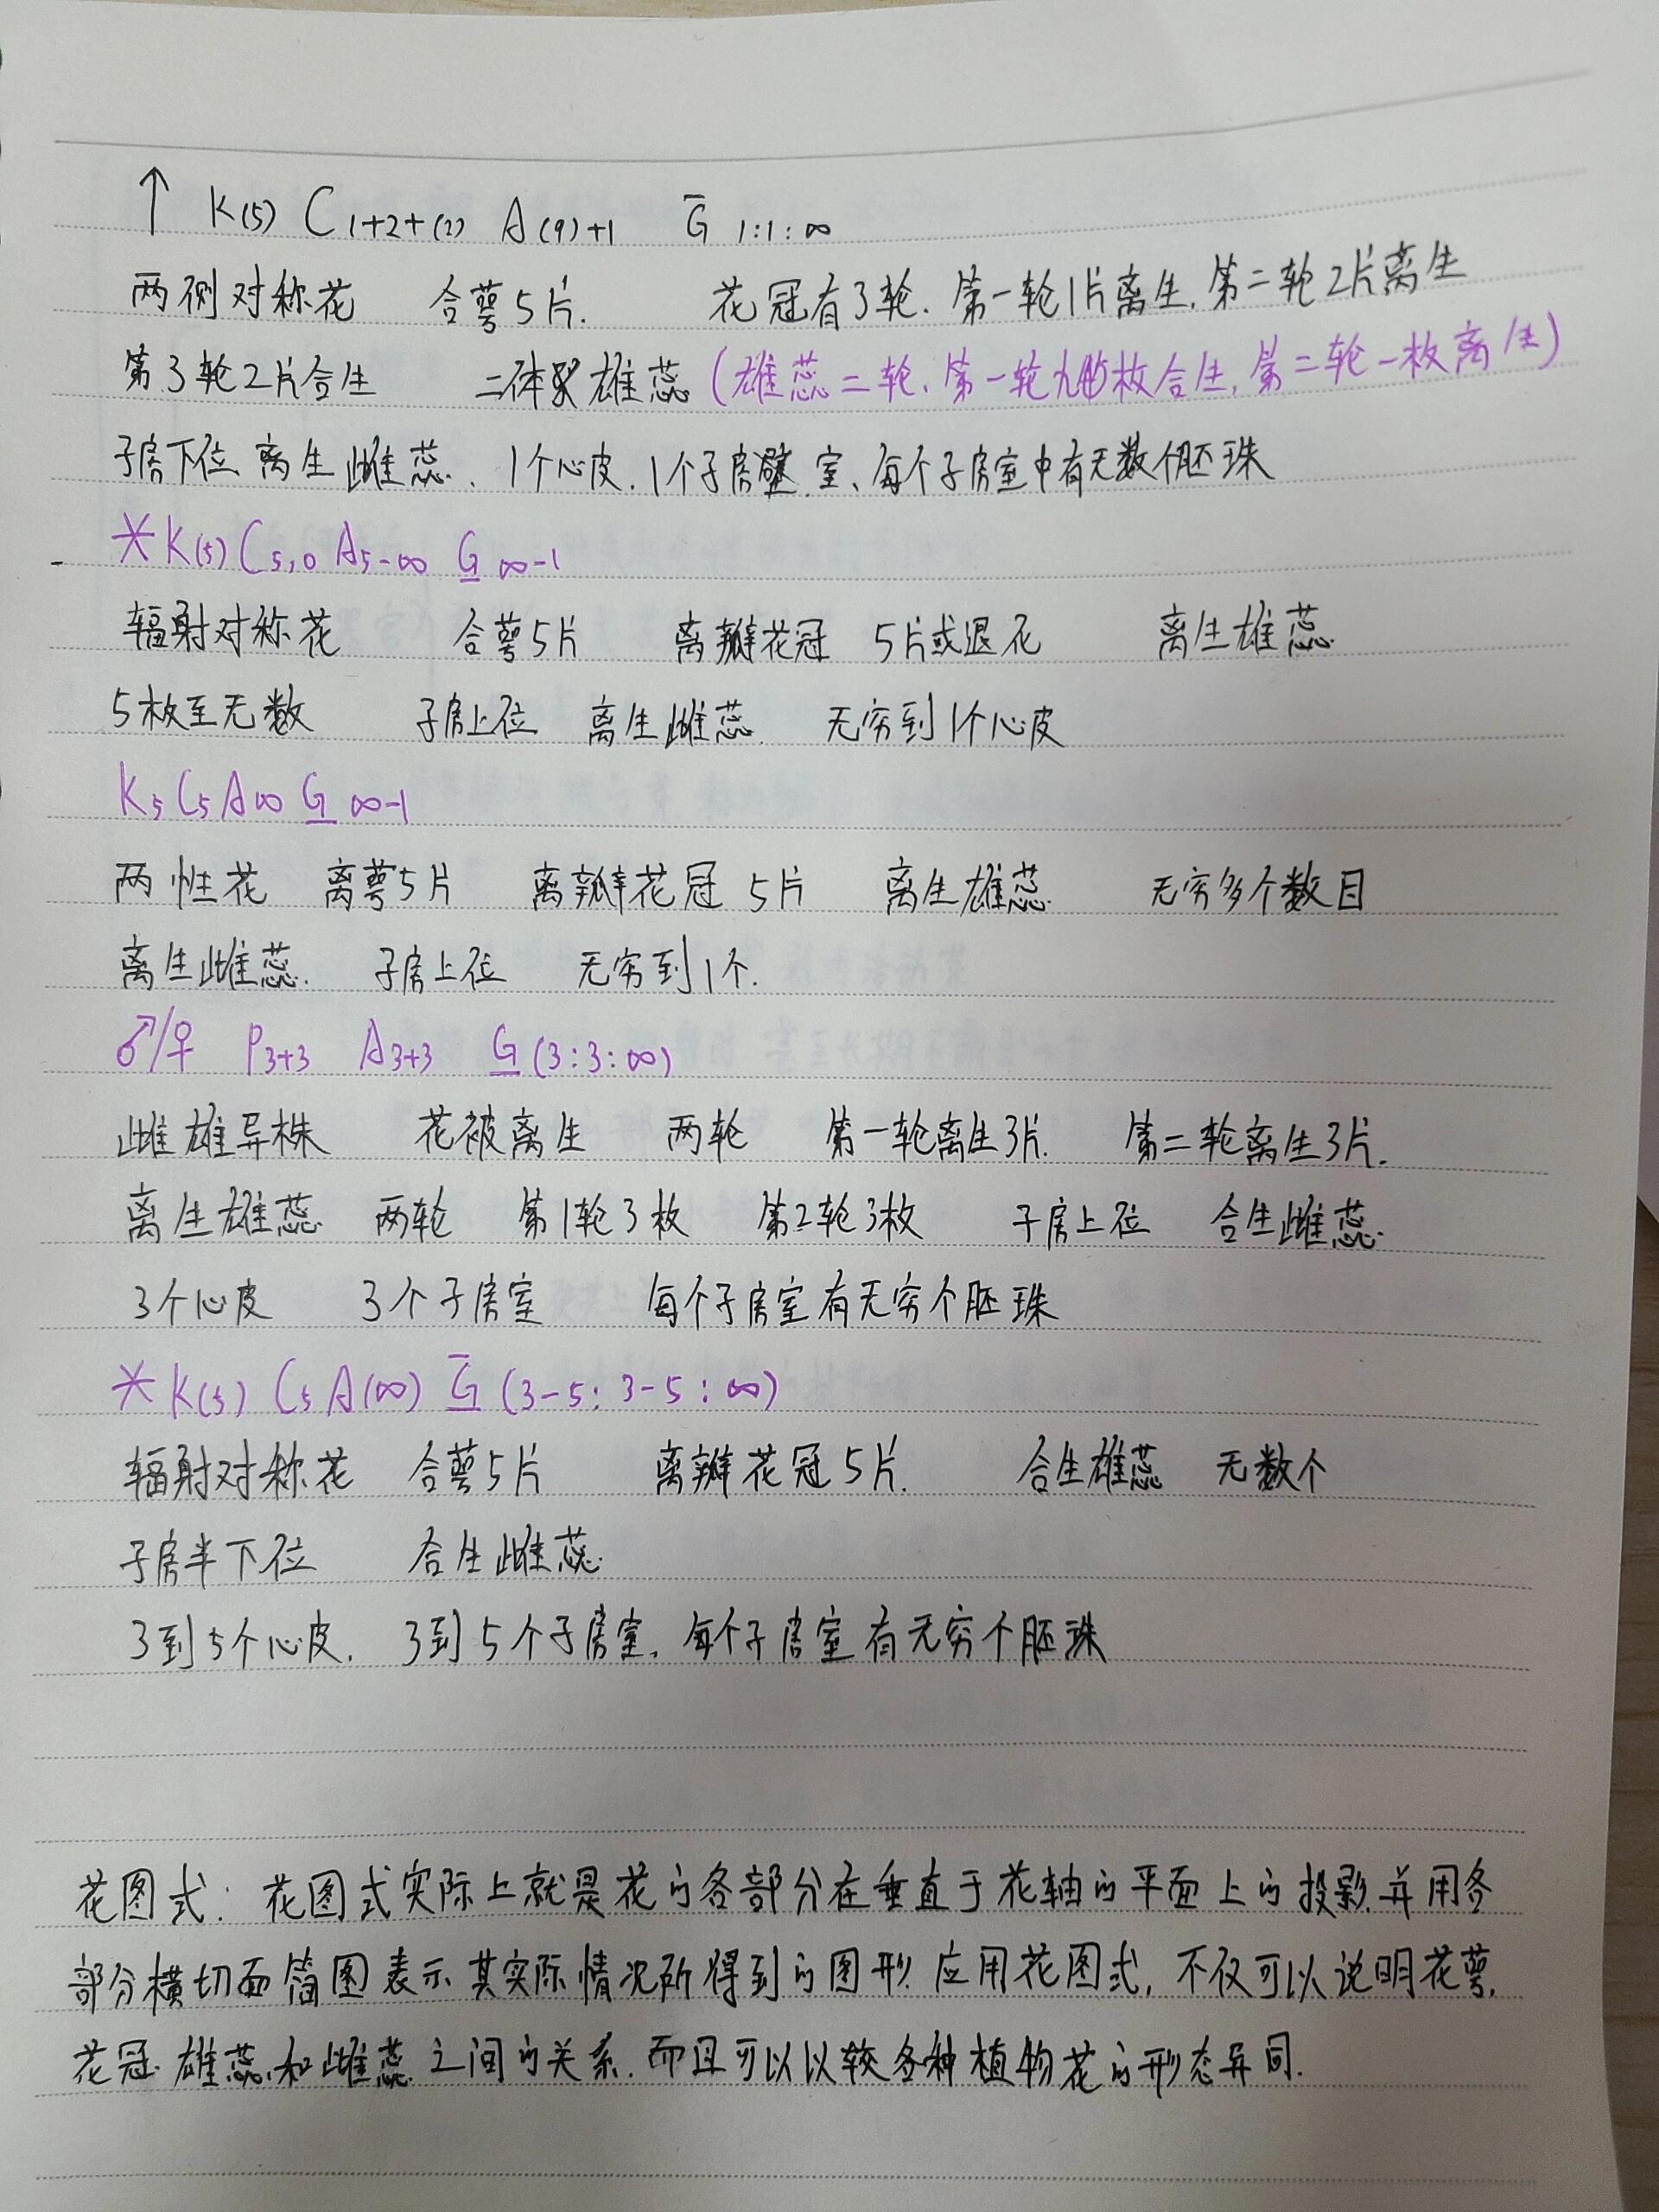 ↑ K(5) C 1+2+(2) A(9)+1 G̅ 1:1:∞
两侧对称花 合萼5片. 花冠有3轮. 第一轮1片离生, 第二轮2片离生
第3轮2片合生 二体雄蕊 (雄蕊二轮, 第一轮九枚合生, 第二轮一枚离生)
子房下位 离生雌蕊、1个心皮. 1个子房室、每个子房室中有无数个胚珠
* K(5) C5,0 A5-∞ G̲ ∞-1
辐射对称花 合萼5片 离瓣花冠 5片或退化 离生雄蕊
5枚至无数 子房上位 离生雌蕊 无穷到1个心皮
K5 C5 A∞ G̲ ∞-1
两性花 离萼5片 离瓣花冠 5片 离生雄蕊 无穷多个数目
离生雌蕊. 子房上位 无穷到1个.
♂/♀ P3+3 A3+3 G̲ (3:3:∞)
雌雄异株 花被离生 两轮 第一轮离生3片. 第二轮离生3片.
离生雄蕊 两轮 第1轮3枚 第2轮3枚 子房上位 合生雌蕊.
3个心皮 3个子房室 每个子房室有无穷个胚珠
* K(5) C5 A(∞) G̲̅ (3-5:3-5:∞)
辐射对称花 合萼5片 离瓣花冠5片. 合生雄蕊 无数个
子房半下位 合生雌蕊.
3到5个心皮. 3到5个子房室, 每个子房室有无穷个胚珠
花图式: 花图式实际上就是花的各部分在垂直于花轴的平面上的投影, 并用各
部分横切面简图表示其实际情况所得到的图形. 应用花图式, 不仅可以说明花萼,
花冠. 雄蕊、和雌蕊之间的关系. 而且可以以较各种植物花的形态异同.